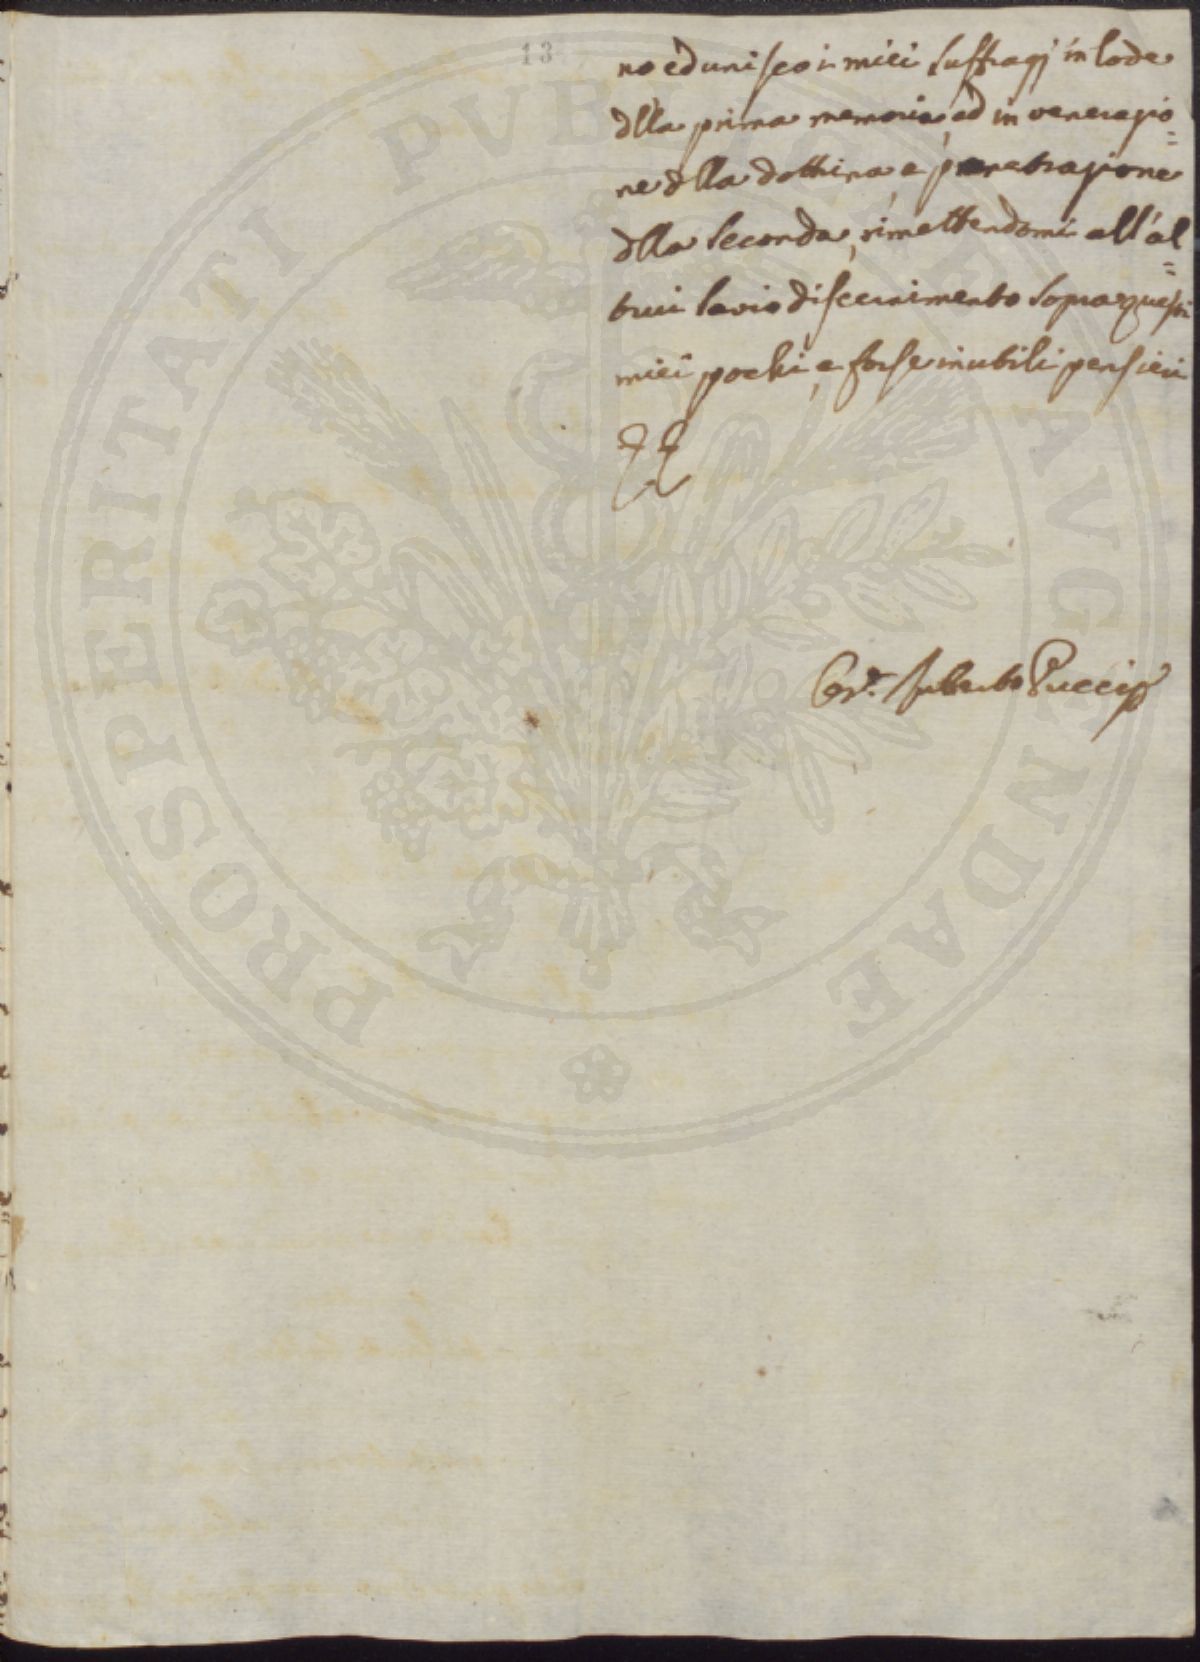 13
no ed unisco i miei suffragj in lode
dlla prima memoria, ed in venerazio=
ne dlla dottrina, e penetrazione
dlla seconda, rimettendomi all'al=
trui savio discernimento sopra questi
miei pochi, e forse inutili pensieri
Puccip
PROSPERITATI PVBLICAE AVGENDAE